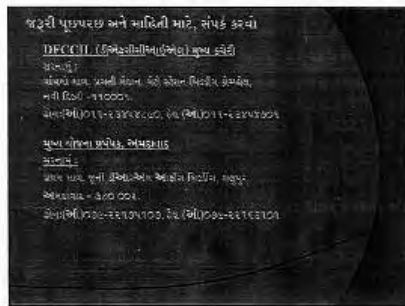 જરૂરી પૂછપરછ અને માહિતી માટે, સંપર્ક કરવો
DFCCIL (ડીએફસીસીઆઈએલ) મુખ્ય કચેરી
સરનામું :
પાંચમો માળ, પ્રગતી મેદાન, મેટ્રો સ્ટેશન બિલ્ડીંગ કોમ્પલેક્ષ,
નવી દિલ્હી -૧૧૦૦૦૧.
ફોન:(ઓ)૦૧૧-૨૩૪૫૪૮૯૦, ફેક્ષ (ઓ)૦૧૧-૨૩૪૫૪૭૦૧
મુખ્ય યોજના પ્રબંધક, અમદાવાદ
સરનામું :
પ્રથમ માળ, જૂની ડીઆરએમ ઓફીસ બિલ્ડીંગ,
અમદાવાદ - ૩૮૦ ૦૦૨.
ફોન:(ઓ)૦૭૯-૨૨૧૭૫૧૦૭, ફેક્ષ (ઓ)૦૭૯-૨૨૧૬૩૧૦૧